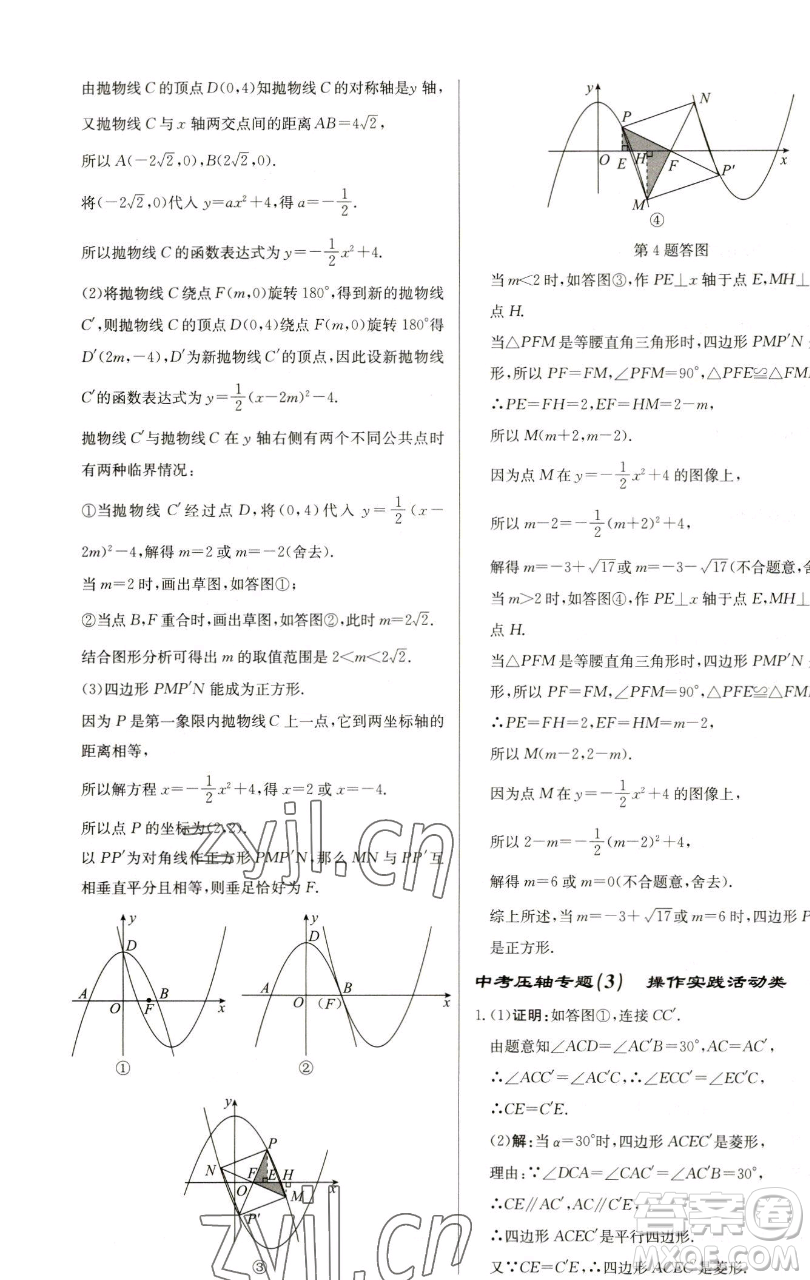 由抛物线 C 的顶点 D(0,4)知抛物线 C 的对称轴是y 轴,
又抛物线 C 与 x 轴两交点间的距离 AB=4√2,
所以 A(-2√2,0),B(2√2,0).
将(-2√2,0)代入 y=ax²+4,得 a=-1/2.
所以抛物线 C 的函数表达式为 y=-1/2x²+4.
(2)将抛物线 C 绕点 F(m,0)旋转 180°,得到新的抛物线
C′,则抛物线 C 的顶点 D(0,4)绕点 F(m,0)旋转 180°得
D′(2m,-4),D′为新抛物线 C′的顶点,因此设新抛物线
C′的函数表达式为 y=1/2(x-2m)²-4.
抛物线 C′与抛物线 C 在 y 轴右侧有两个不同公共点时
有两种临界情况:
①当抛物线 C′ 经过点 D,将 (0,4) 代入 y=1/2(x-
2m)²-4,解得 m=2 或 m=-2(舍去).
当 m=2 时,画出草图,如答图①;
②当点 B,F 重合时,画出草图,如答图②,此时 m=2√2.
结合图形分析可得出 m 的取值范围是 2<m<2√2.
(3)四边形 PMP′N 能成为正方形.
因为 P 是第一象限内抛物线 C 上一点,它到两坐标轴的
距离相等,
所以解方程 x=-1/2x²+4,得 x=2 或 x=-4.
所以点 P 的坐标为(2,2).
以 PP′为对角线作正方形 PMP′N,那么 MN 与 PP′互
相垂直平分且相等,则垂足恰好为 F.
y
D
A
O
F
B
x
①
y
D
A
O
B
(F)
x
②
y
P
N
F
E
H
O
M
x
P′
③
y
N
P
O
E
H
F
x
P′
M
④
第 4 题答图
当 m<2 时,如答图③,作 PE⊥x 轴于点 E,MH⊥
点 H.
当△PFM 是等腰直角三角形时,四边形 PMP′N
形,所以 PF=FM,∠PFM=90°,△PFE≌△FM
∴PE=FH=2,EF=HM=2-m,
所以 M(m+2,m-2).
因为点 M 在 y=-1/2x²+4 的图像上,
所以 m-2=-1/2(m+2)²+4,
解得 m=-3+√17或 m=-3-√17(不合题意,舍
当 m>2 时,如答图④,作 PE⊥x 轴于点 E,MH⊥
点 H.
当△PFM 是等腰直角三角形时,四边形 PMP′N
形,所以 PF=FM,∠PFM=90°,△PFE≌△FM
∴PE=FH=2,EF=HM=m-2,
所以 M(m-2,2-m).
因为点 M 在 y=-1/2x²+4 的图像上,
所以 2-m=-1/2(m-2)²+4,
解得 m=6 或 m=0(不合题意,舍去).
综上所述,当 m=-3+√17或 m=6 时,四边形 P
是正方形.
中考压轴专题(3) 操作实践活动类
1. (1)证明:如答图①,连接 CC′.
由题意知∠ACD=∠AC′B=30°,AC=AC′,
∴∠ACC′=∠AC′C,∴∠ECC′=∠EC′C,
∴CE=C′E.
(2)解:当 α=30°时,四边形 ACEC′是菱形,
理由:∵∠DCA=∠CAC′=∠AC′B=30°,
∴CE∥AC′,AC∥C′E,
∴四边形 ACEC′是平行四边形.
又∵CE=C′E,∴四边形 ACEC′是菱形.
zyjl.cn
zyjl.cn
答案圈
MXQE.COM